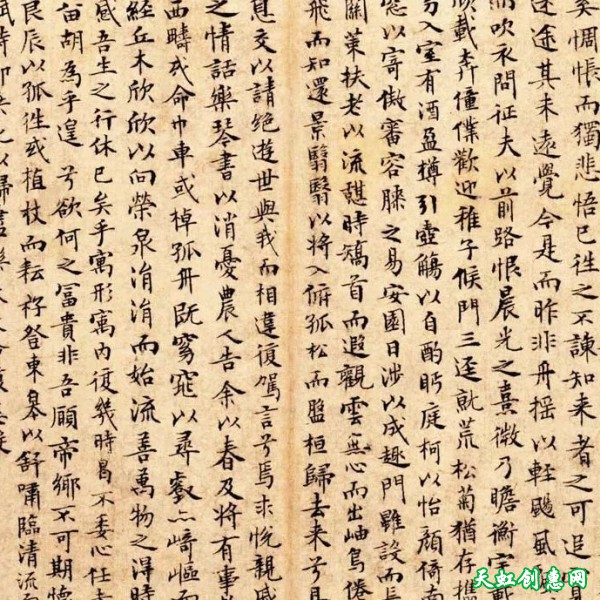 奚惆悵而獨悲悟已往之不諫知来者之可追
迷途其未遠覺今是而昨非舟摇以輕颺風
而吹衣問征夫以前路恨晨光之熹微乃瞻衡宇載
欣載奔僮僕歡迎稚子候門三逕就荒松菊猶存攜
幼入室有酒盈樽引壺觴以自酌眄庭柯以怡顔倚南
窓以寄傲審容膝之易安園日涉以成趣門雖設而長
關策扶老以流憩時矯首而遐觀雲無心而出岫鳥倦
飛而知還景翳翳以將入俯孤松而盤桓歸去来兮
息交以請絶遊世與我而相違復駕言兮焉求悅親戚
之情話樂琴書以消憂農人告余以春及將有事
西疇或命巾車或棹孤舟既窈窕以尋壑亦崎嶇而
經丘木欣欣以向榮泉涓涓而始流善萬物之得時
感吾生之行休已矣乎寓形寓内復幾時曷不委心任去
留胡為乎遑兮欲何之冨貴非吾願帝郷不可期懷
良辰以孤往或植杖而耘耔登東皋以舒嘯臨清流
天虹创惠网